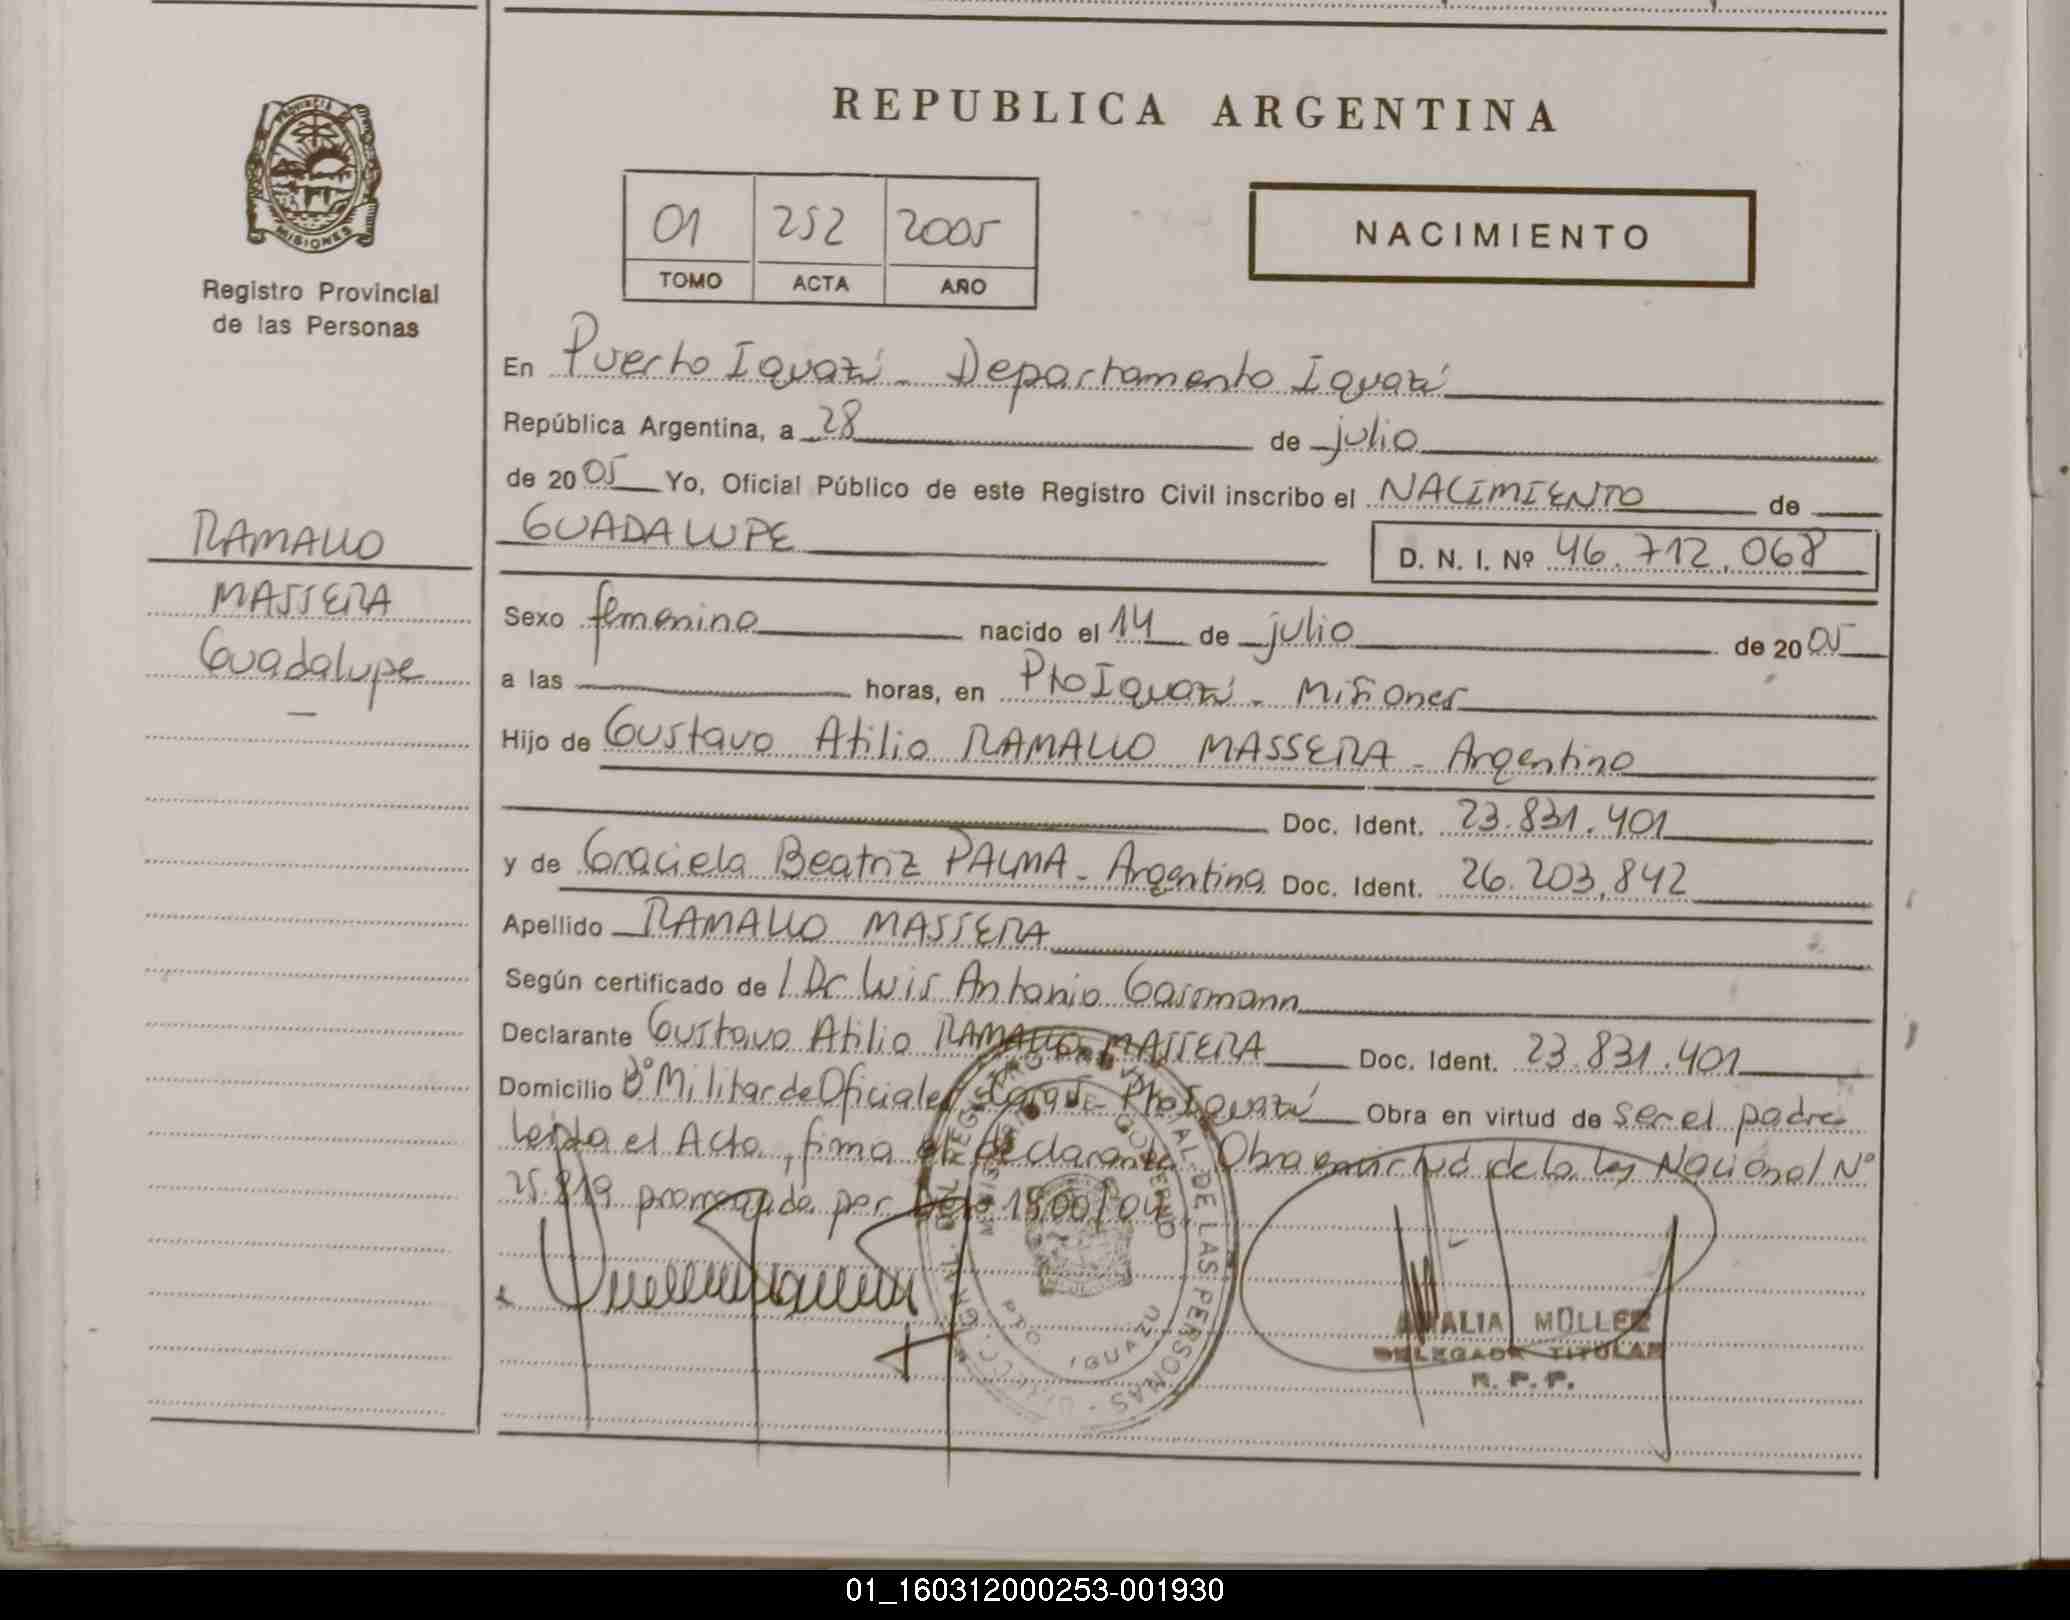 REPUBLICA ARGENTINA
PROVINCIA
MISIONES
Registro Provincial
de las Personas
01 252 2005
TOMO ACTA AÑO
NACIMIENTO
En Puerto Iguazú - Departamento Iguazú
República Argentina, a 28 de julio
de 2005 Yo, Oficial Público de este Registro Civil inscribo el NACIMIENTO de
GUADALUPE D. N. I. Nº 46.712.068
RAMALLO
MASSERA
Guadalupe
Sexo femenino nacido el 14 de julio de 2005
a las horas, en Pto Iguazú - Misiones
Hijo de Gustavo Atilio RAMALLO MASSERA - Argentino
Doc. Ident. 23.831.401
y de Graciela Beatriz PALMA - Argentina Doc. Ident. 26.203.842
Apellido RAMALLO MASSERA
Según certificado de / Dr Luis Antonio Gassmann
Declarante Gustavo Atilio RAMALLO MASSERA Doc. Ident. 23.831.401
Domicilio Bº Militar de Oficiales Pto Iguazú Obra en virtud de ser el padre
Leida el Acta, firma el declarante. Obra en virtud de la ley Nacional Nº
25.819 por 1900/04
PTO IGUAZU
AMALIA MÜLLER
DELEGADA TITULAR
R. P. P.
01_160312000253-001930